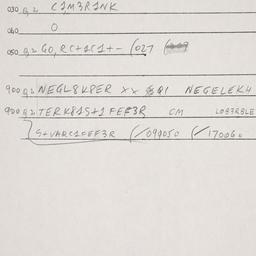 030 G2 C1M3R1NK
040 O
050 G2 GO,RC+1C1+- (027
900 G2 NEGL8K8ER XX 81 NEGELEKH
900 G2 TERK81S+1FEF3R CM LOB3RBLE
S+VARC1FEF3R (/099050 (/170060